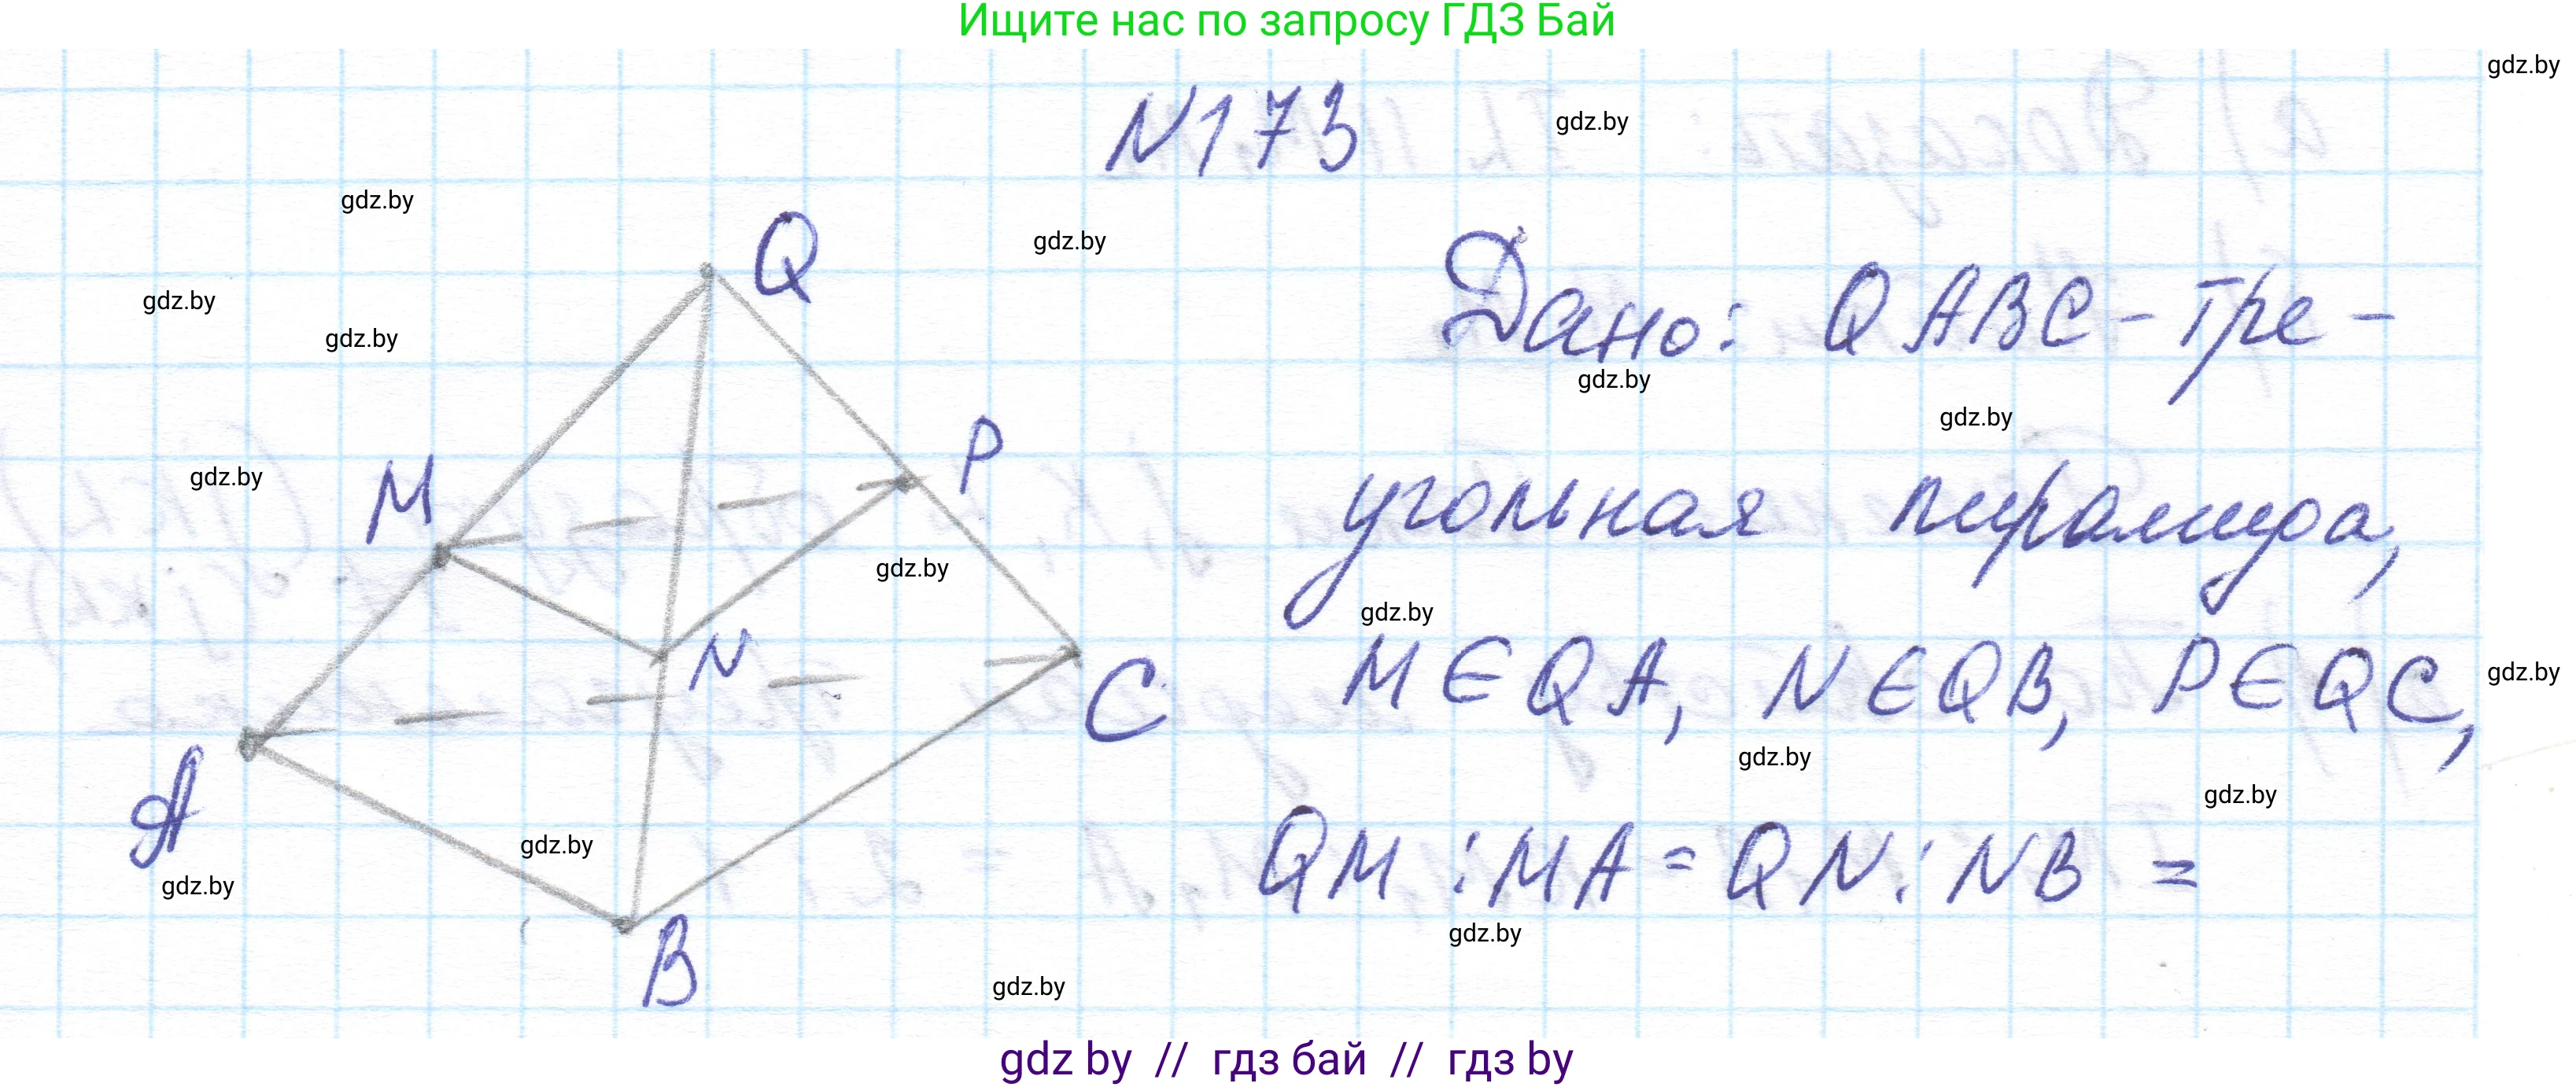 Ищите нас по запросу ГДЗ Бай
gdz.by
N173
gdz.by
gdz.by
Q
gdz.by
Дано: QABC - тре -
gdz.by
gdz.by
gdz.by
gdz.by
M
P
gdz.by
угольная пирамида,
gdz.by
gdz.by
N
M ∈ QA, N ∈ QB, P ∈ QC,
gdz.by
C
gdz.by
A
gdz.by
QM : MA = QN : NB =
gdz.by
gdz.by
gdz.by
B
gdz.by
gdz by // гдз бай // гдз by